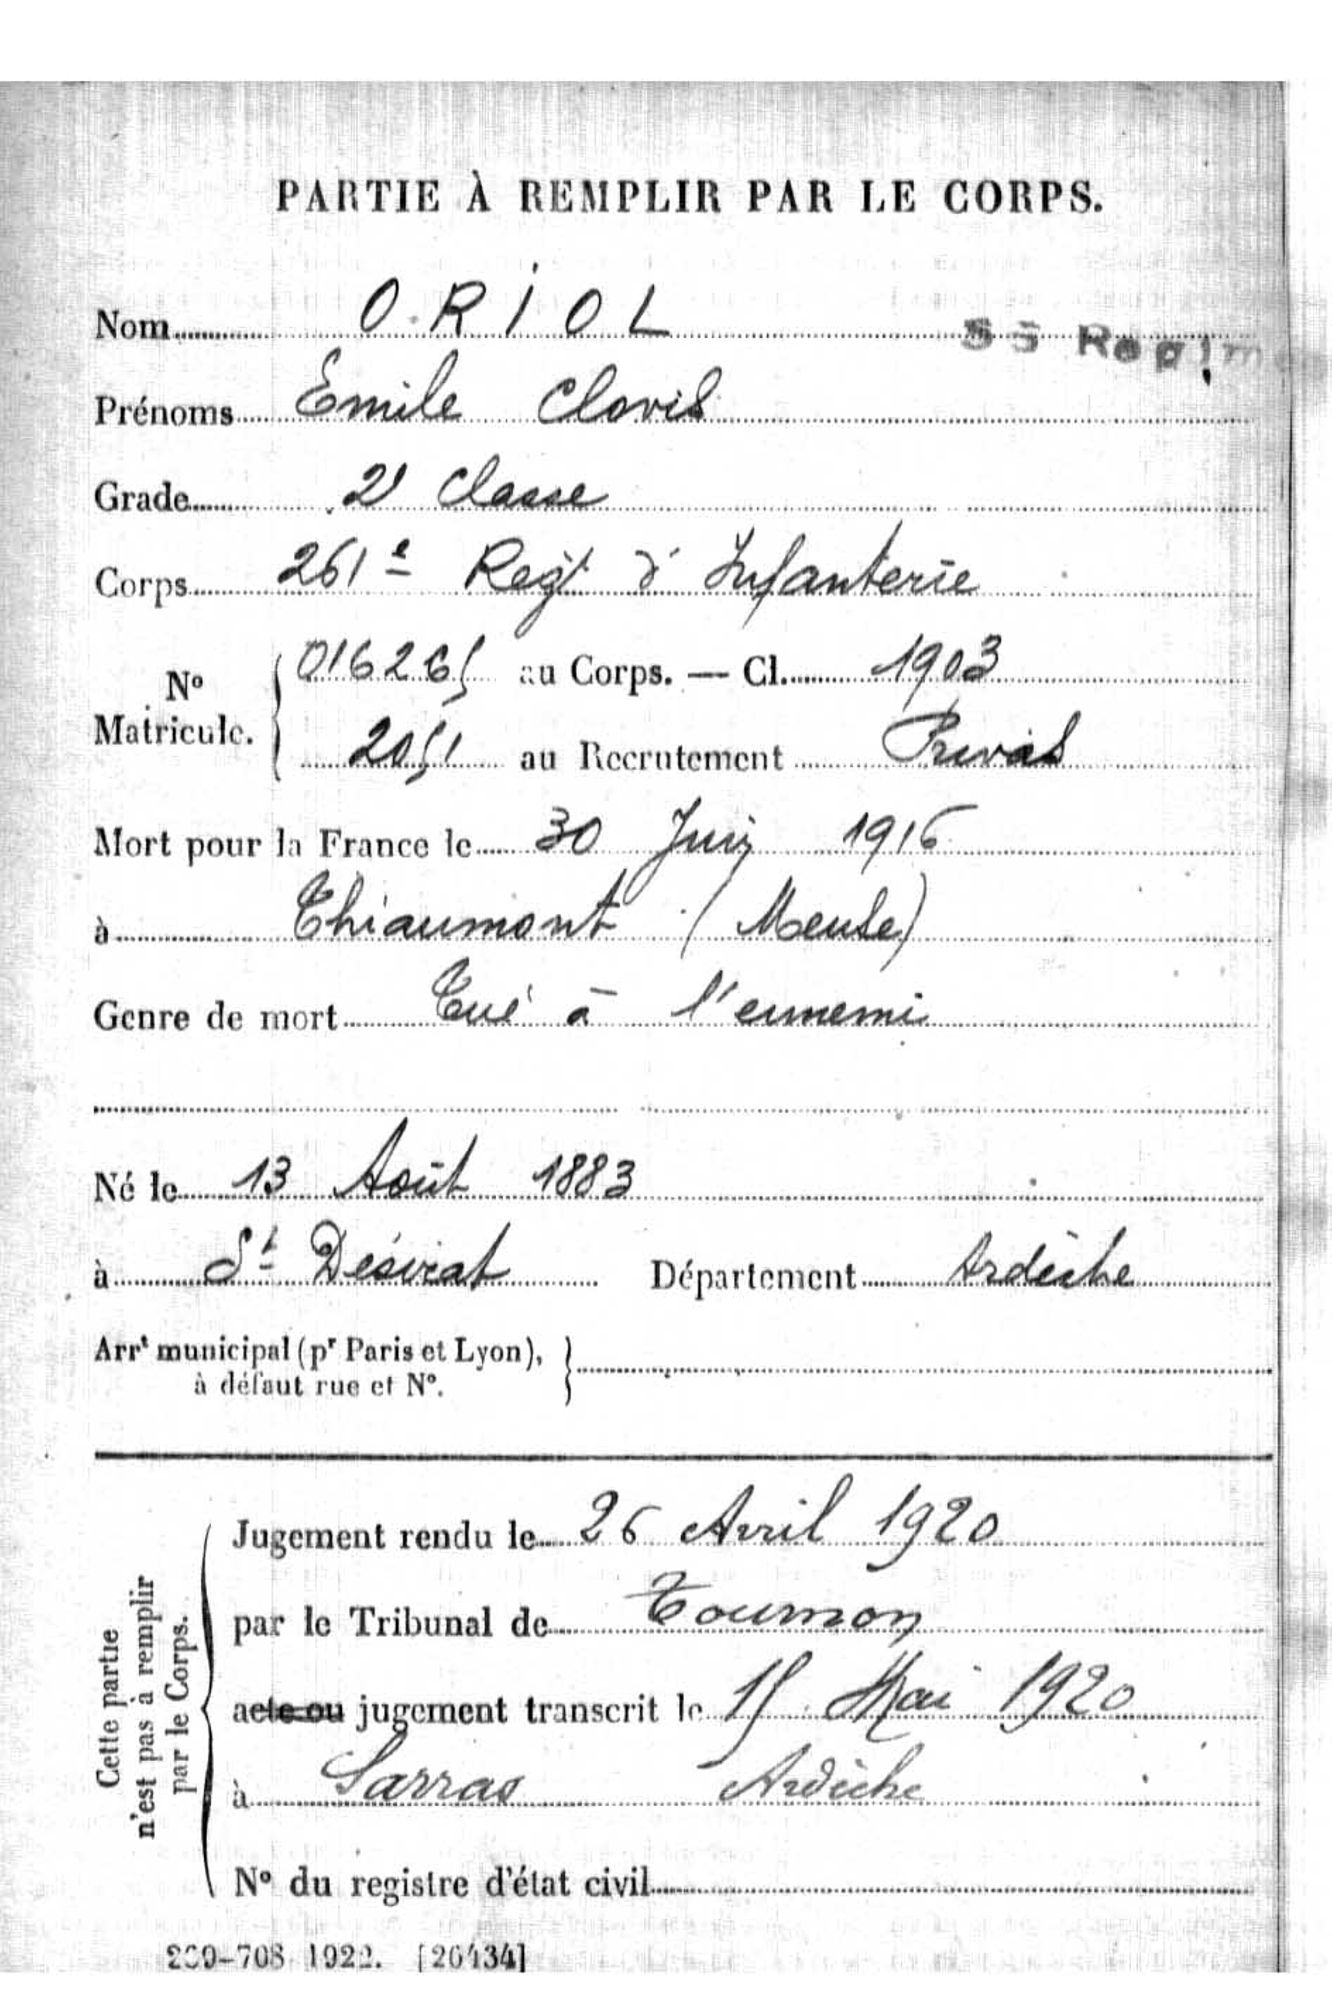 PARTIE À REMPLIR PAR LE CORPS.
Nom ORIOL
55 Regim
Prénoms Emile Clovis
Grade 2e Classe
Corps 261e Regt d'Infanterie
No Matricule. 016265 au Corps. — Cl. 1903
2051 au Recrutement Privas
Mort pour la France le 30 Juin 1916
à Thiaumont (Meuse)
Genre de mort Tué à l'ennemi
Né le 13 Août 1883
à St Désirat Département Ardèche
Arrt municipal (pr Paris et Lyon),
à défaut rue et No.
Cette partie
n'est pas à remplir
par le Corps.
Jugement rendu le 26 Avril 1920
par le Tribunal de Tournon
acte ou jugement transcrit le 15 Mai 1920
à Sarras Ardèche
No du registre d'état civil
-708 1922. [26434]